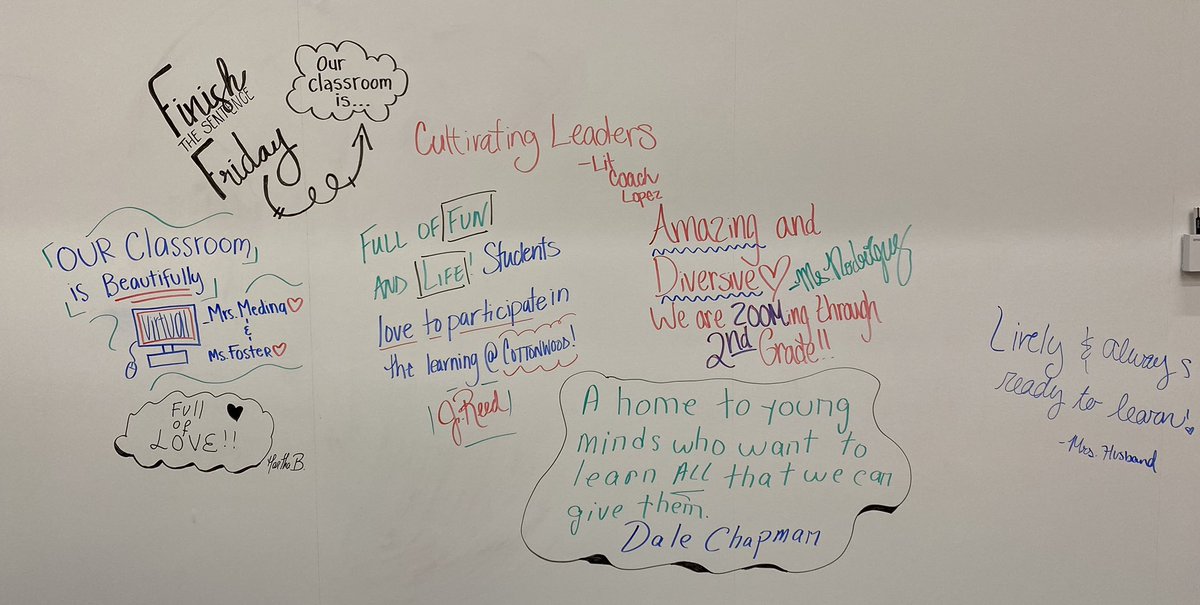 Finish
THE SENTENCE
Friday
Our
classroom
is...
Cultivating Leaders
-Lit
Coach
Lopez
OUR Classroom
is Beautifully
Virtual
-Mrs. Medina
&
Ms. Foster
Full
of
LOVE!!
Martha B.
FULL OF FUN
AND LIFE! Students
love to participate in
the learning @ COTTONWOOD!
J. Reed
Amazing and
Diversive
-Ms. Rodriguez
We are ZOOMing through
2nd Grade!!
A home to young
minds who want to
learn ALL that we can
give them.
Dale Chapman
Lively & always
ready to learn!
-Mrs. Husband